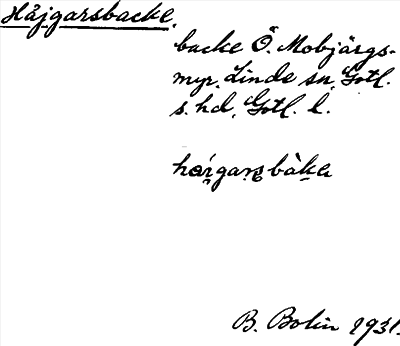 Håjgarsbacke.
backe Ö. Mobjärgs-
myr. Linde sn, Gotl.
s. hd, Gotl. l.
B. Bolin 1931.